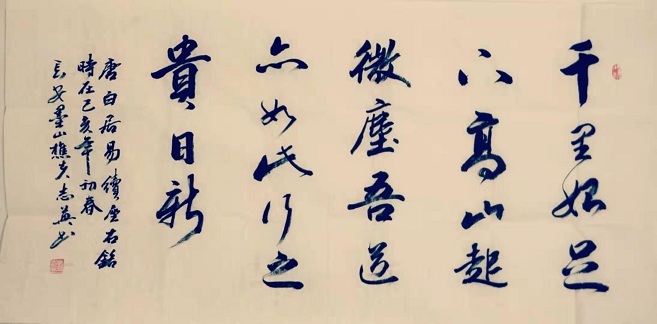 千里始足
下高山起
微塵吾道
亦如此行之
貴日新
唐白居易續座右銘
時在己亥年初春
墨山樵夫志英书